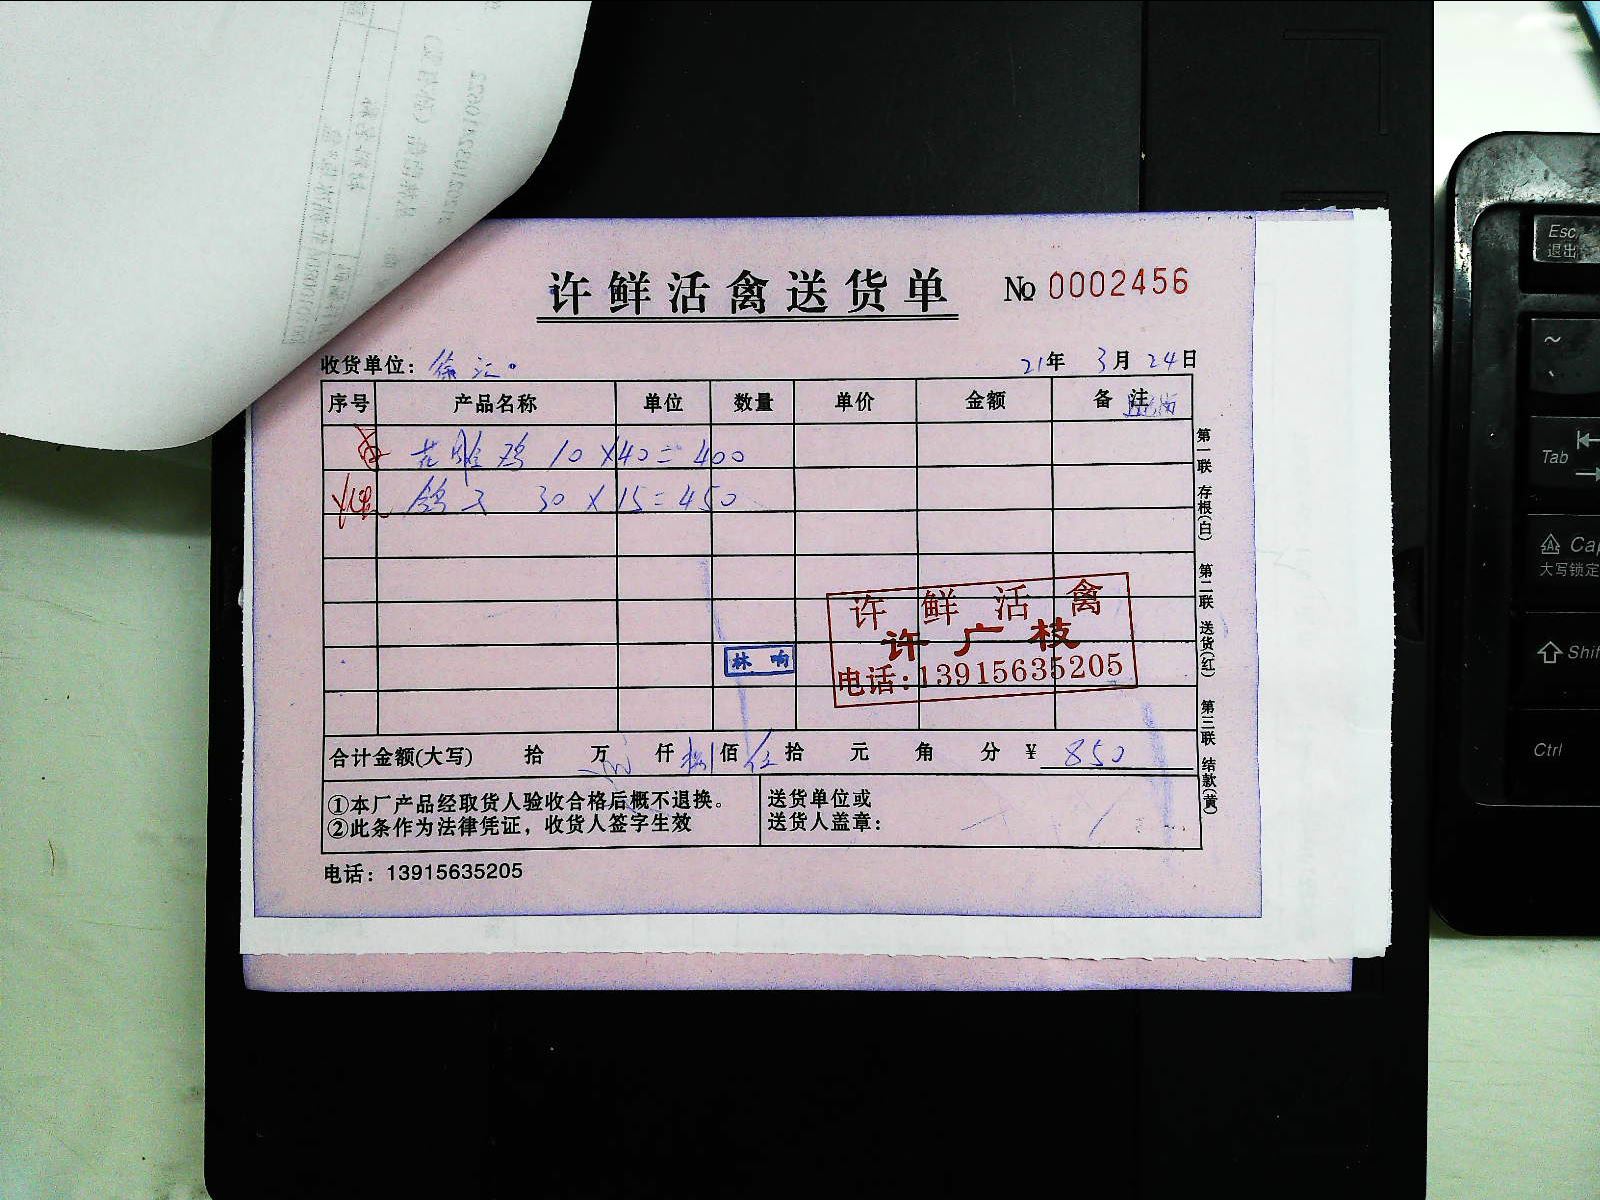 许鲜活禽送货单 № 0002456
收货单位： 21年 3月 24日
序号 产品名称 单位 数量 单价 金额 备注
花雕鸡 10×40=400
鸽子 30×15=450
许鲜活禽
许广枝
电话:13915635205
林 响
合计金额(大写) 拾 万 仟 捌佰 伍拾 元 角 分 ¥ 850
①本厂产品经取货人验收合格后概不退换。
②此条作为法律凭证，收货人签字生效
送货单位或
送货人盖章：
电话：13915635205
第一联 存根(白) 第二联 送货(红) 第三联 结款(黄)
Esc
退出
~
Tab
Cap
大写锁定
Shif
Ctrl